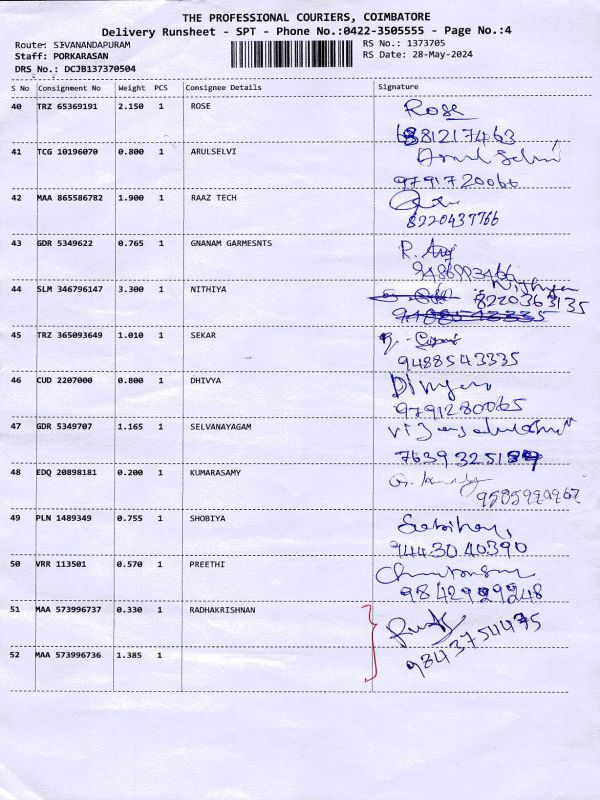 THE PROFESSIONAL COURIERS, COIMBATORE
Delivery Runsheet - SPT - Phone No.:0422-3505555 - Page No.:4
Route: SIVANANDAPURAM
RS No.: 1373705
Staff: PORKARASAN
RS Date: 28-May-2024
DRS No.: DCJB137370504
S No Consignment No Weight PCS Consignee Details Signature
40 TRZ 65369191 2.150 1 ROSE Rose
41 TCG 10196070 0.800 1 ARULSELVI
9791720066
42 MAA 865586782 1.900 1 RAAZ TECH
8220437766
43 GDR 5349622 0.765 1 GNANAM GARMESNTS
44 SLM 346796147 3.300 1 NITHIYA Nithya
8220363135
45 TRZ 365093649 1.010 1 SEKAR
9488543335
46 CUD 2207000 0.800 1 DHIVYA
9791280065
47 GDR 5349707 1.165 1 SELVANAYAGAM
48 EDQ 20898181 0.200 1 KUMARASAMY
49 PLN 1489349 0.755 1 SHOBIYA
9443040390
50 VRR 113501 0.570 1 PREETHI
51 MAA 573996737 0.330 1 RADHAKRISHNAN
9843754475
52 MAA 573996736 1.385 1